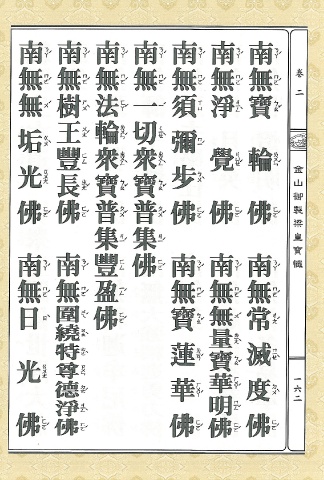 卷二
金山御製梁皇寶懺
一六二
南無寶輪佛　南無常滅度佛
南無淨覺佛　南無無量寶華明佛
南無須彌步佛　南無寶蓮華佛
南無一切衆寶普集佛
南無法輪衆寶普集豐盈佛
南無樹王豐長佛　南無圍繞特尊德淨佛
南無無垢光佛　南無日光佛